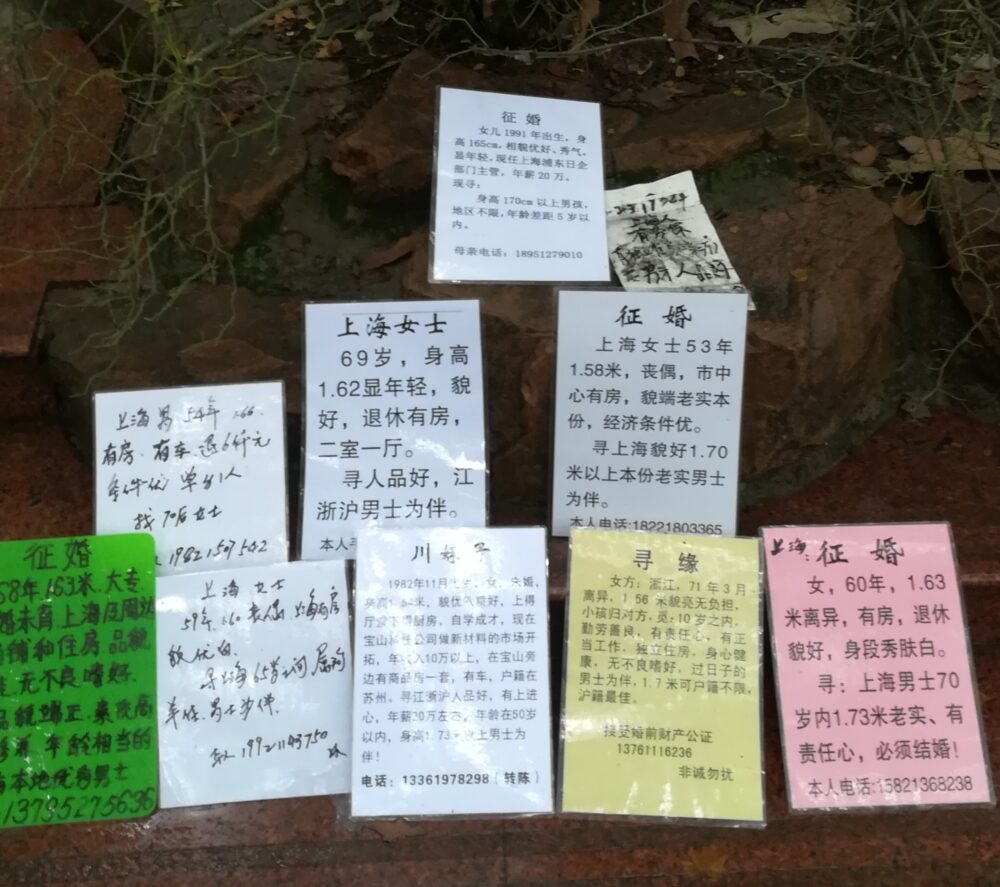 征婚
女儿1991年出生，身
高165cm，相貌优好、秀气，
显年轻，现任上海浦东日企
部门主管，年薪20万。
现寻：
身高170cm以上男孩，
地区不限，年龄差距5岁以
内。
母亲电话：18951279010
上海女士
69岁，身高
1.62显年轻，貌
好，退休有房，
二室一厅。
寻人品好，江
浙沪男士为伴。
征婚
上海女士53年
1.58米，丧偶，市中
心有房，貌端老实本
份，经济条件优。
寻上海貌好1.70
米以上本份老实男士
为伴。
本人电话:18221803365
上海男 54年 1.66.
有房.有车.退6仟元
条件优 单身1人
找70后女士
19821507542
征婚
68年1.63米.大专
婚未育上海及周边
商铺和住房.品貌
佳.无不良嗜好.
品貌端正.素质高
年龄相当的
本地优秀男士
13735275636
上海女士
59年.1.60丧偶.上海有房
貌优白.
寻上海65岁之间
年红.男士为伴.
19921143750
川妹子
1982年11月出生，女，未婚，
身高1.64米，貌优人贤好，上得
厅堂下得厨房，自学成才，现在
宝山科技公司做新材料的市场开
拓，年收入10万以上，在宝山旁
边有商品房一套，有车，户籍在
苏州。寻江浙沪人品好，有上进
心，年薪20万左右，年龄在50岁
以内，身高1.73米以上男士为
伴！
电话：13361978298（转陈）
寻缘
女方：浙江，71年3月
离异，1.56米貌亮无负担，
小孩归对方，觅：10岁之内，
勤劳善良，有责任心，有正
当工作，独立住房，身心健
康，无不良嗜好，过日子的
男士为伴，1.7米可户籍不限，
沪籍最佳。
接受婚前财产公证
13761116236
非诚勿扰
上海 征婚
女，60年，1.63
米离异，有房，退休
貌好，身段秀肤白。
寻：上海男士70
岁内1.73米老实、有
责任心，必须结婚！
本人电话:15821368238